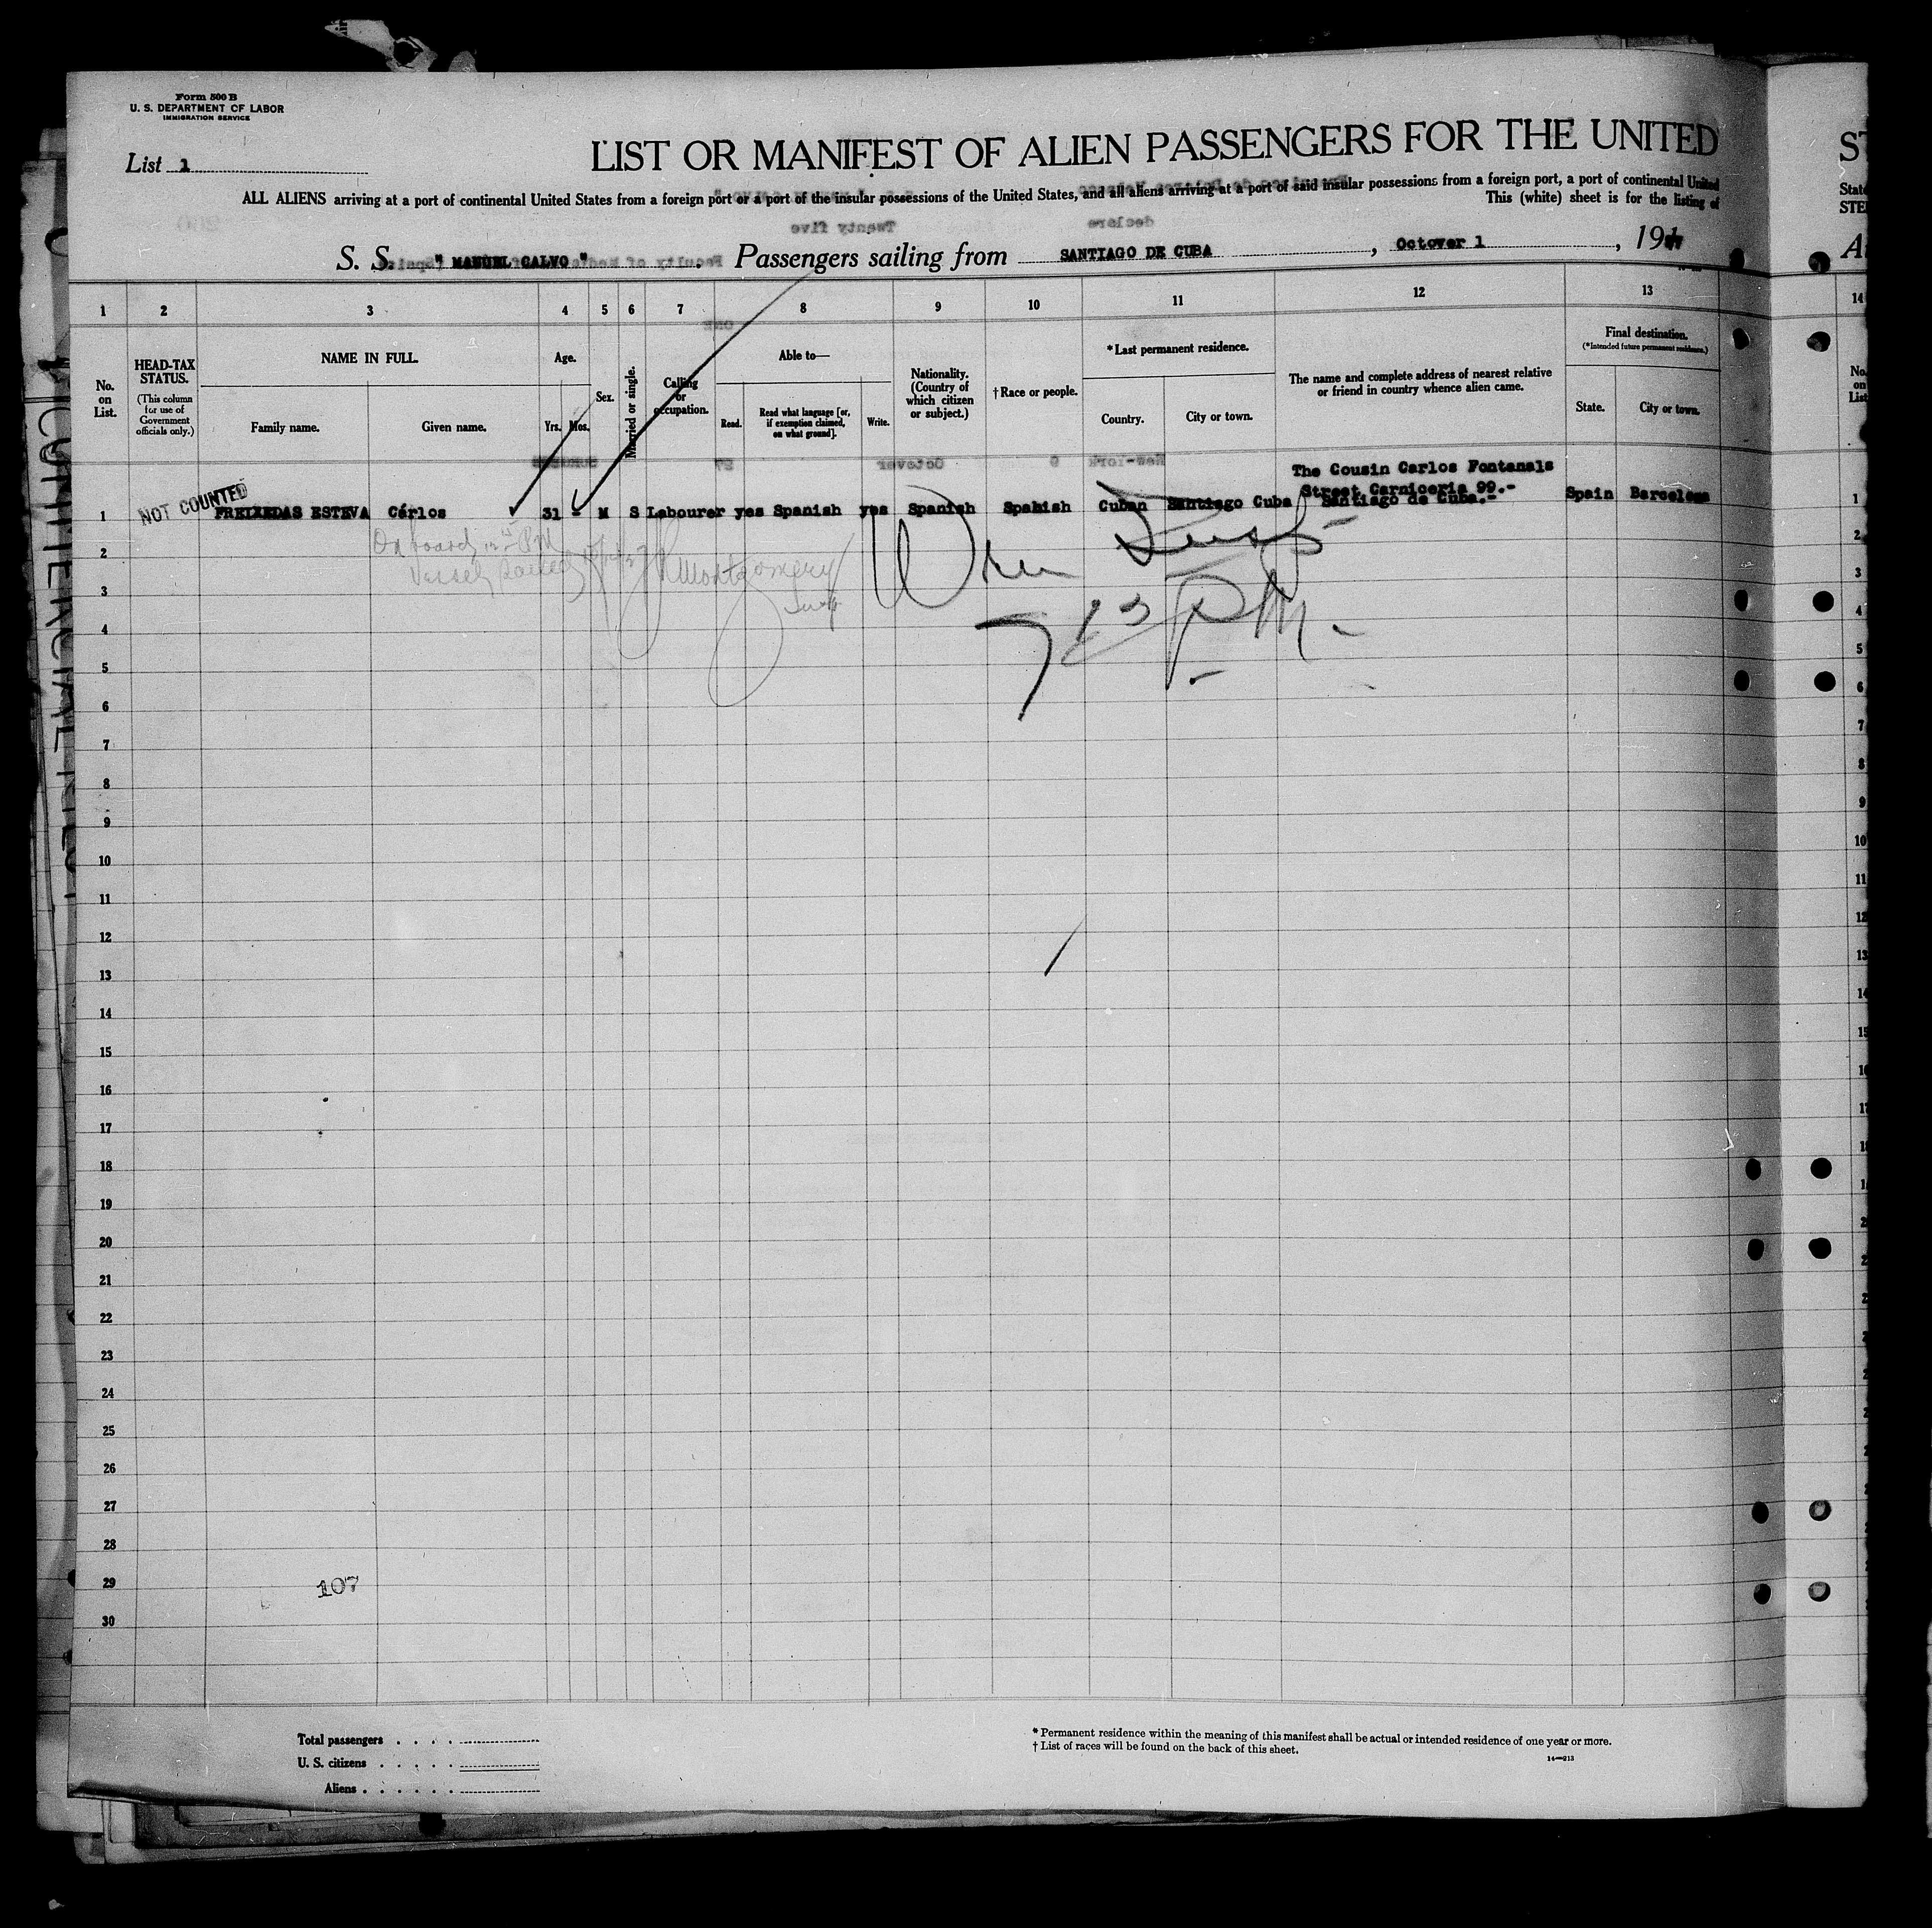 Form 500 B
U. S. DEPARTMENT OF LABOR
IMMIGRATION SERVICE
List 1
LIST OR MANIFEST OF ALIEN PASSENGERS FOR THE UNITED
ALL ALIENS arriving at a port of continental United States from a foreign port or a port of the insular possessions of the United States, and all aliens arriving at a port of said insular possessions from a foreign port, a port of continental United
This (white) sheet is for the listing of
S. S. " MANUEL CALVO " Passengers sailing from SANTIAGO DE CUBA, Octover 1, 19
1 2 3 4 5 6 7 8 9 10 11 12 13
No. on List.
HEAD-TAX STATUS.
(This column for use of Government officials only.)
NAME IN FULL.
Family name. Given name.
Age.
Yrs. Mos.
Sex.
Married or single.
Calling or occupation.
Able to—
Read. Read what language [or, if exemption claimed, on what ground]. Write.
Nationality. (Country of which citizen or subject.)
† Race or people.
* Last permanent residence.
Country. City or town.
The name and complete address of nearest relative or friend in country whence alien came.
Final destination.
(* Intended future permanent residence.)
State. City or town.
NOT COUNTED
The Cousin Carlos Fontanals
Street Carniceria 99.-
1 FREIXEDAS ESTEVA Cárlos 31 - M S Labourer yes Spanish yes Spanish Spanish Cuban Santiago Cuba Santiago de Cuba.- Spain Barcelona
On board PM
Vessel sailed Montgomery
Insp
PM
2
3
4
5
6
7
8
9
10
11
12
13
14
15
16
17
18
19
20
21
22
23
24
25
26
27
28
29
107
30
Total passengers
U. S. citizens
Aliens
* Permanent residence within the meaning of this manifest shall be actual or intended residence of one year or more.
† List of races will be found on the back of this sheet.
14—213